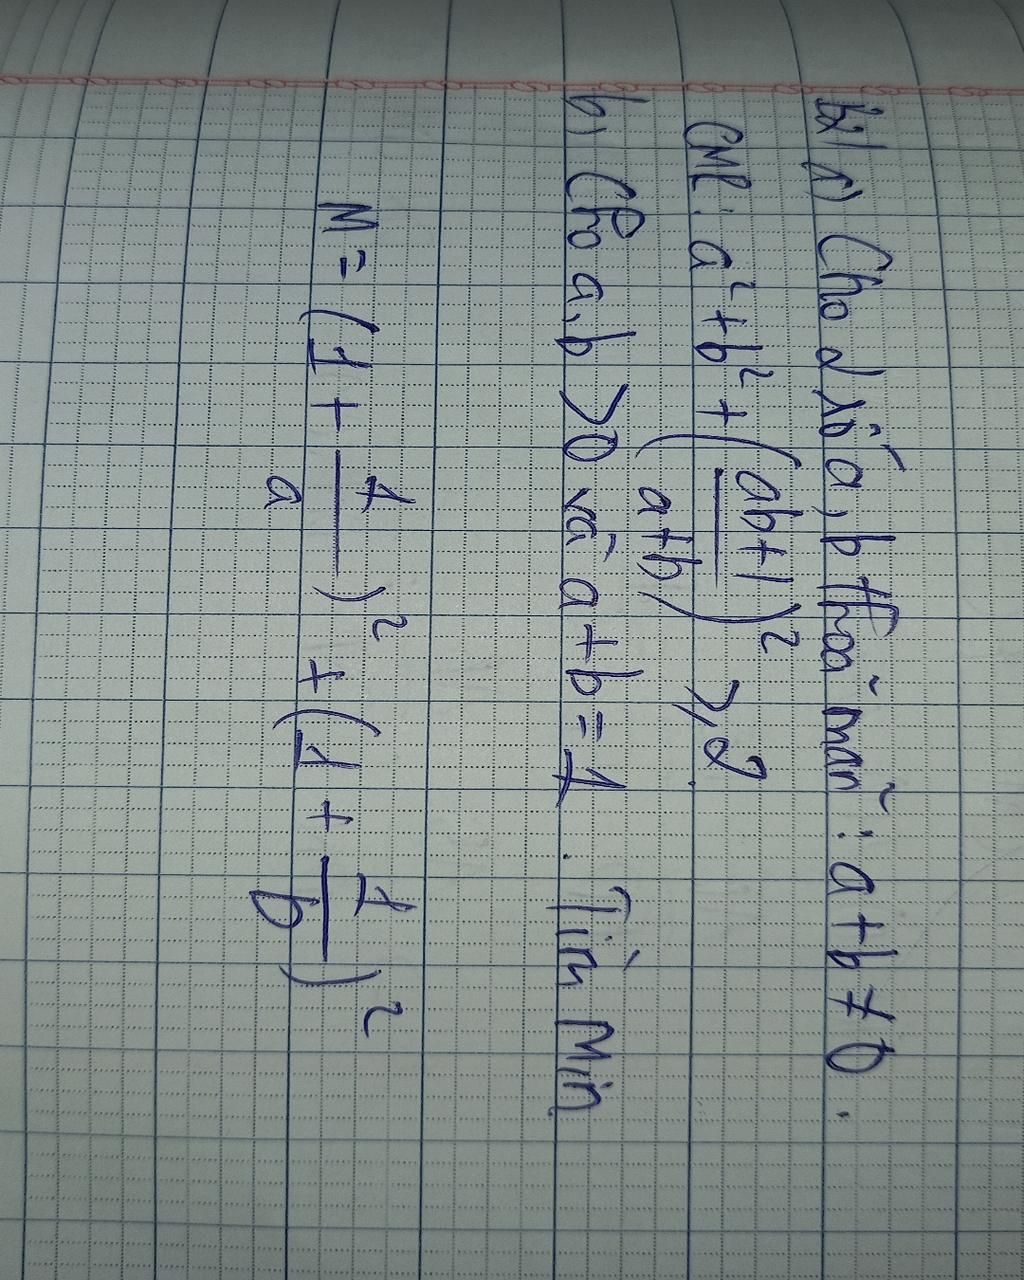 b2/ 1) Cho 2 số a, b thoả mãn : a + b ≠ 0 .
CMR : a² + b² + (ab+1 / a+b)² ≥ 2 .
b, Cho a, b > 0 và a + b = 1 . Tìm Min
M = (1 + 1/a)² + (1 + 1/b)²